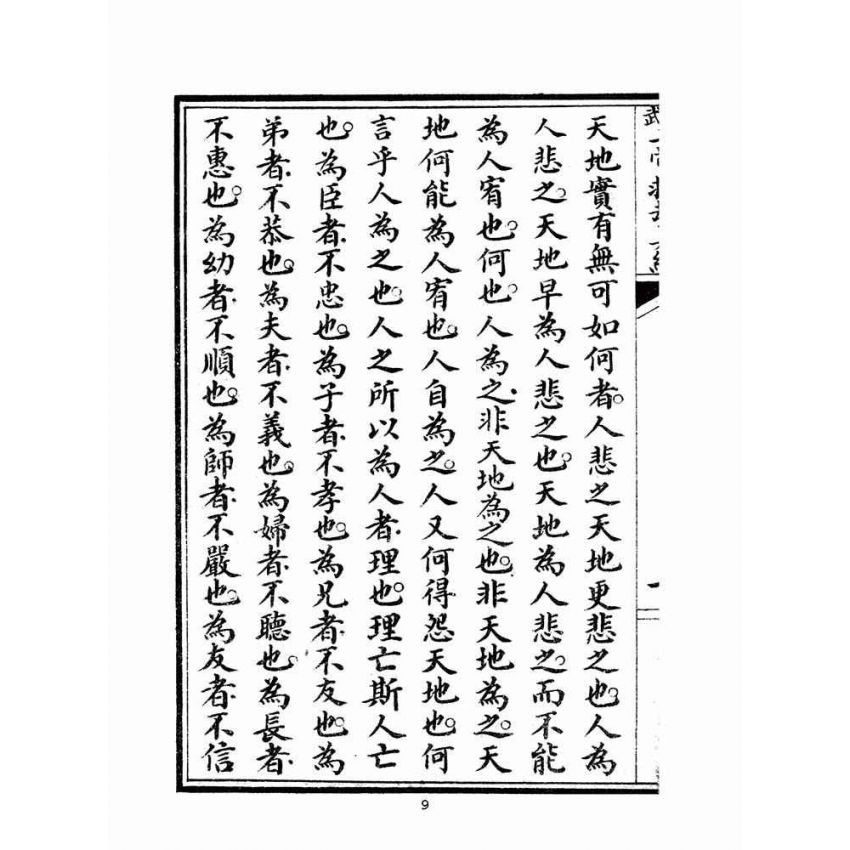 天地實有無可如何者。人悲之天地更悲之也。人為
人悲之。天地早為人悲之也。天地為人悲之。而不能
為人宥也。何也。人為之。非天地為之也。非天地為之。天
地何能為人宥也。人自為之。人又何得怨天地也。何
言乎人為之也。人之所以為人者。理也。理亡斯人亡
也。為臣者。不忠也。為子者。不孝也。為兄者。不友也。為
弟者。不恭也。為夫者。不義也。為婦者。不聽也。為長者。
不惠也。為幼者。不順也。為師者。不嚴也。為友者。不信
9